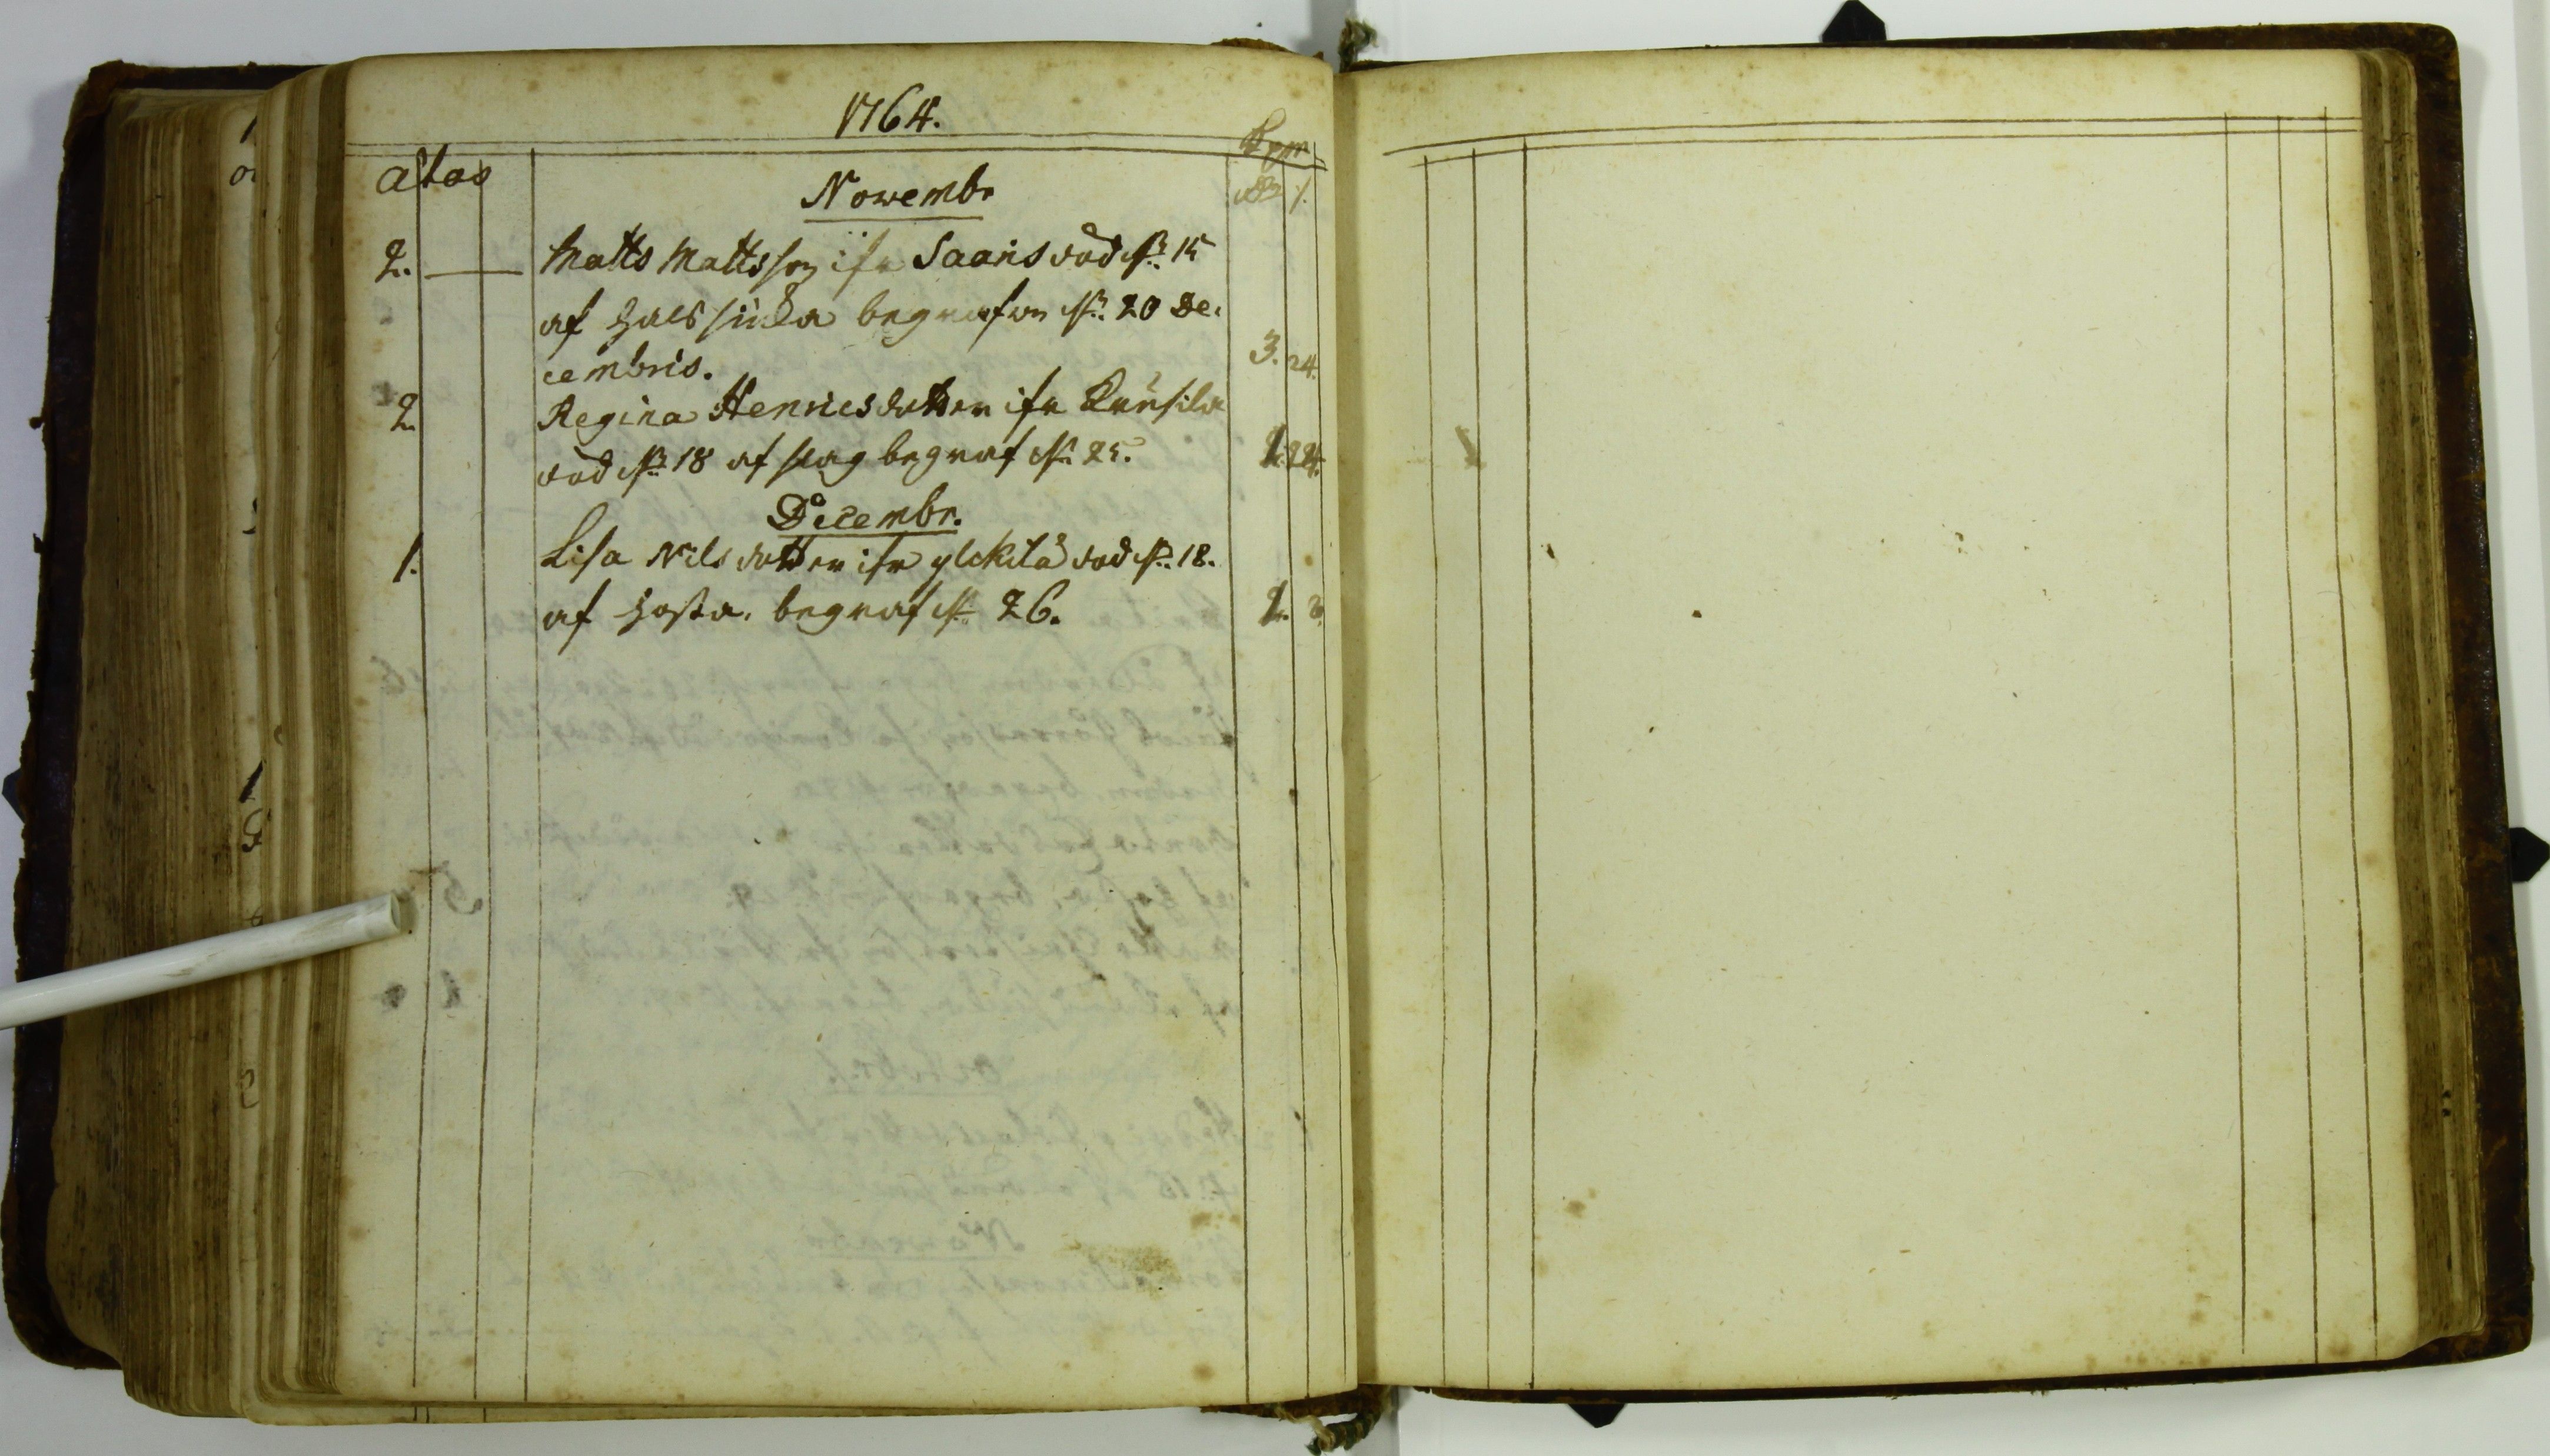 1764.
Kpm
Ætas
Novembr
2. Matts Mattsson ifr Saaris död d. 15
af halssiuka begrafven d. 20 De-
cembris. 3. 24.
2 Regina Henricsdotter ifr
död d. 18 af slag begraf d. 25. 1. 24.
Decembr.
1. Lisa Nilsdotter ifr ylckilä död d. 18.
af hosta. begraf d. 26. 2.